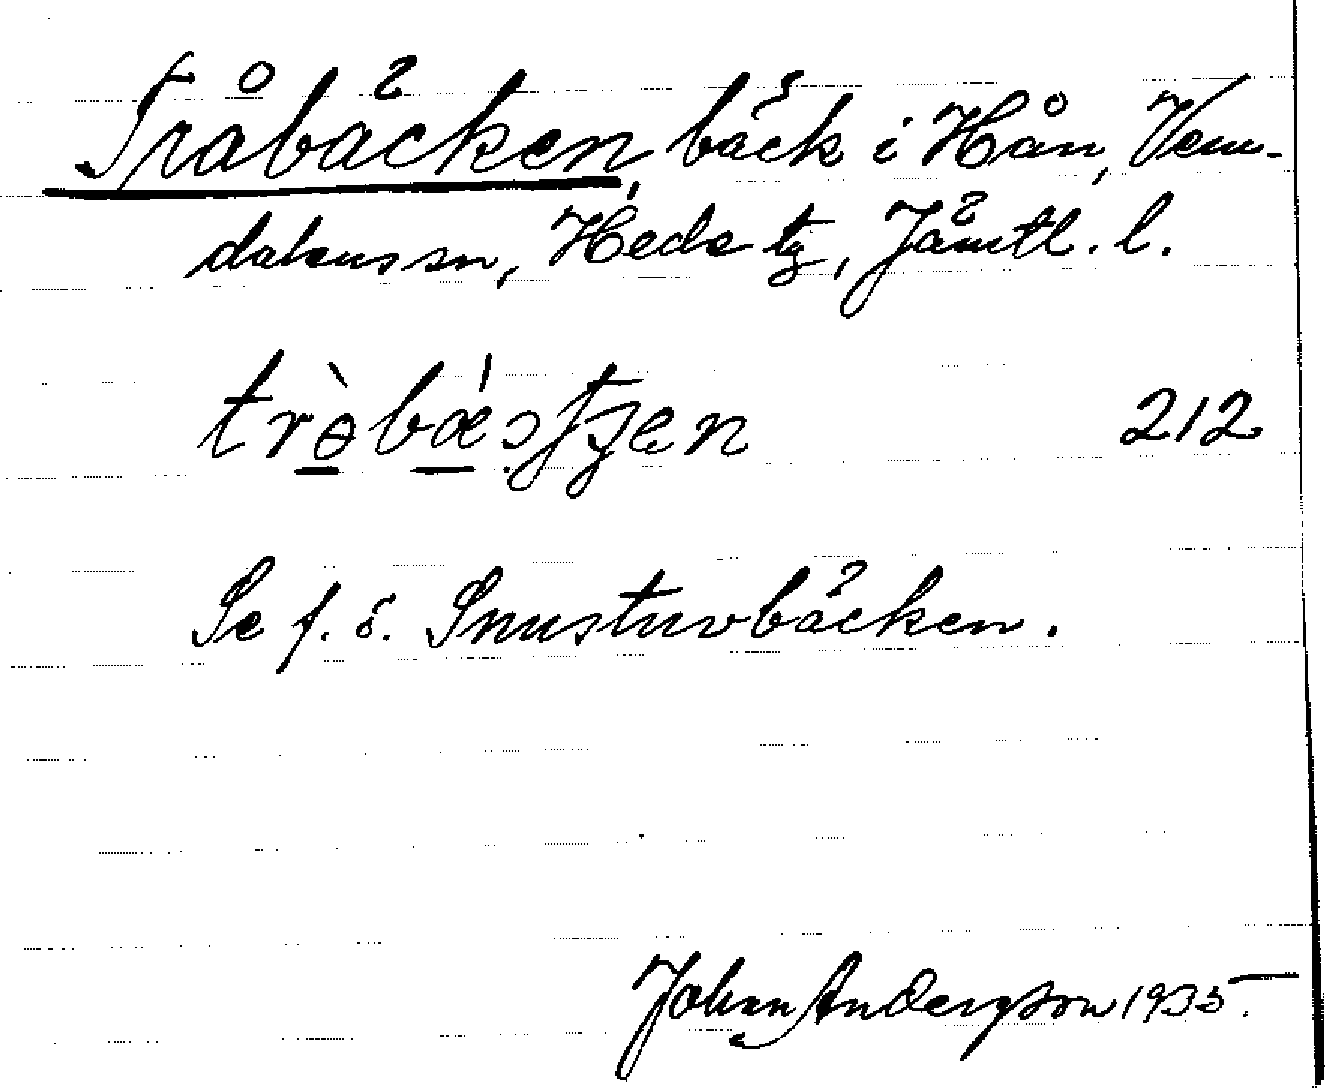 Tråbäcken, bäck i Hån, Vem-
dalens sn, Hede tg, Jämtl. l.
212
Se f. ö. Snusturvbäcken.
Johan Andersson 1935.